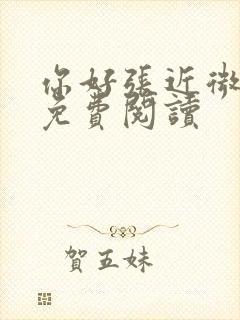 你好張近微
免費閱讀
賀五妹